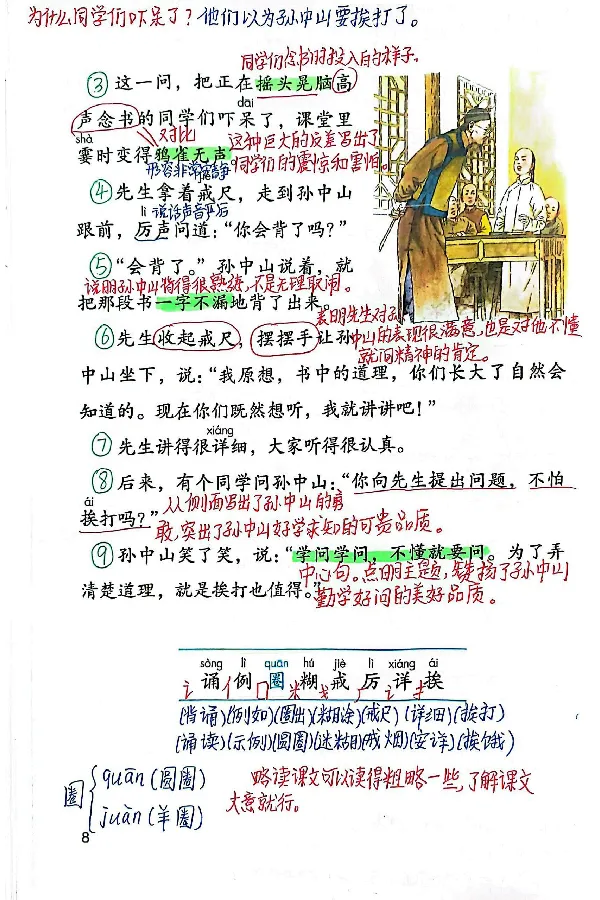 为什么同学们吓呆了？他们以为孙中山要挨打了。
同学们念书时投入的样子。
③这一问，把正在摇头晃脑高
dāi
声念书的同学们吓呆了，课堂里
shà
对比
霎时变得鸦雀无声。
形容非常静
这种巨大的反差写出了
同学们的震惊和害怕。
④先生拿着戒尺，走到孙中山
lì 说话声音严厉
跟前，厉声问道：“你会背了吗？”
⑤“会背了。”孙中山说着，就
说明孙中山背得很熟练，不是无理取闹。
把那段书一字不漏地背了出来。
表明先生对孙
⑥先生收起戒尺，摆摆手让孙
中山的表现很满意，也是对他不懂
就问精神的肯定。
中山坐下，说：“我原想，书中的道理，你们长大了自然会
知道的。现在你们既然想听，我就讲讲吧！”
xiáng
⑦先生讲得很详细，大家听得很认真。
⑧后来，有个同学问孙中山：“你向先生提出问题，不怕
ái
挨打吗？”
从侧面写出了孙中山的勇
敢，突出了孙中山好学求知的可贵品质。
⑨孙中山笑了笑，说：“学问学问，不懂就要问。为了弄
中心句。点明主题，赞扬了孙中山
清楚道理，就是挨打也值得。”
勤学好问的美好品质。
sòng lì quān hú jiè lì xiáng ái
诵 例 圈 糊 戒 厉 详 挨
(背诵)(例如)(圈出)(糊涂)(戒尺)(详细)(挨打)
(诵读)(示例)(圆圈)(迷糊)(戒烟)(安详)(挨饿)
圈
quān(圆圈)
juàn(羊圈)
略读课文可以读得粗略一些，了解课文
大意就行。
8